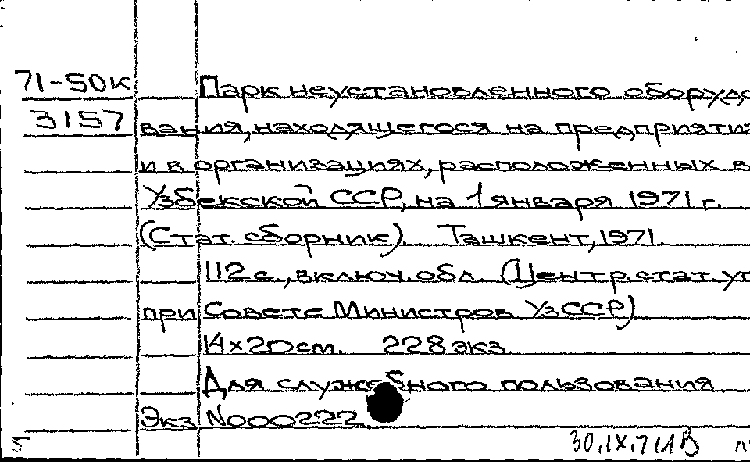 71-50к Парк неустановленного оборудо
3157 вания, находящегося на предприяти
и в организациях, расположенных в
Узбекской ССР, на 1 января 1971 г.
(Стат. сборник). Ташкент, 1971.
112 с., включ. обл. (Центр. стат. уп
при Совете Министров УзССР)
14×20 см. 228 экз.
Для служебного пользования
Экз N000222
5 30.IX.71